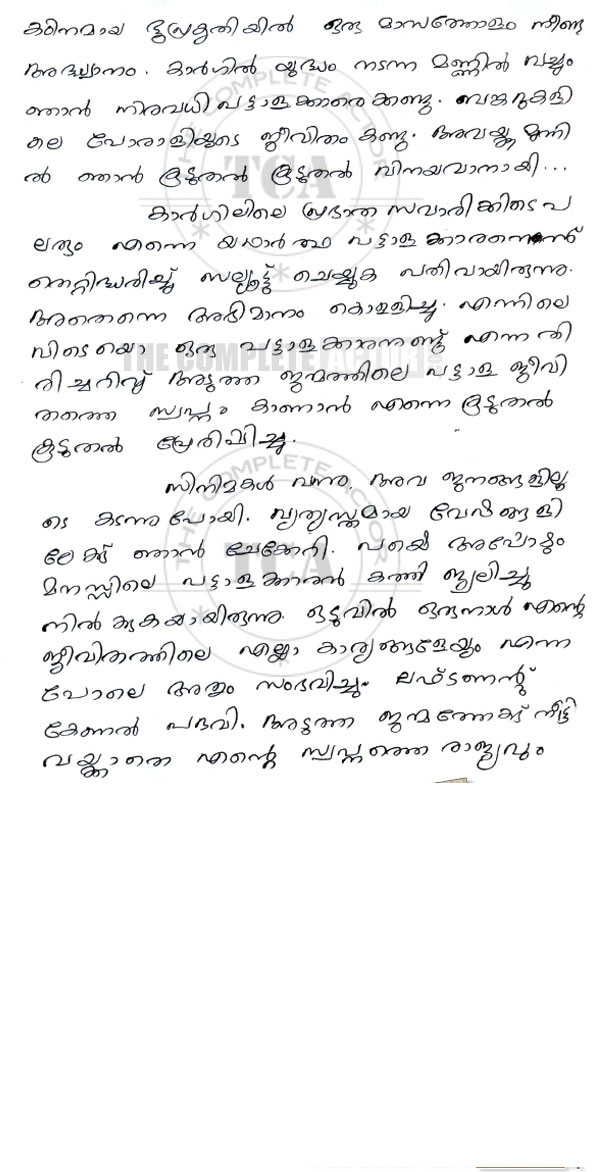 കഠിനമായ ഭൂപ്രകൃതിയിൽ ഒരു മാസത്തോളം നീണ്ട
അദ്ധ്വാനം. കാർഗിൽ യുദ്ധം നടന്ന മണ്ണിൽ വച്ചും
ഞാൻ നിരവധി പട്ടാളക്കാരെ കണ്ടു. ബങ്കറുകളി
ലെ പോരാളിയുടെ ജീവിതം കണ്ടു. അവയ്ക്കു മുന്നി
ൽ ഞാൻ കൂടുതൽ കൂടുതൽ വിനയവാനായി...
കാർഗിലിലെ പ്രഭാത സവാരിക്കിടെ പ
ലരും എന്നെ യഥാർത്ഥ പട്ടാളക്കാരനെന്ന്
തെറ്റിദ്ധരിച്ച് സല്യൂട്ട് ചെയ്യുക പതിവായിരുന്നു.
അതെന്നെ അഭിമാനം കൊള്ളിച്ചു. എന്നിലെ
വിടെയൊ ഒരു പട്ടാളക്കാരനുണ്ട് എന്ന തി
രിച്ചറിവ് അടുത്ത ജന്മത്തിലെ പട്ടാള ജീവി
തത്തെ സ്വപ്നം കാണാൻ എന്നെ കൂടുതൽ
കൂടുതൽ പ്രേരിപ്പിച്ചു.
സിനിമകൾ വന്നു. അവ ജനങ്ങളിലൂ
ടെ കടന്നുപോയി. വ്യത്യസ്തമായ വേഷങ്ങളി
ലേക്ക് ഞാൻ ചേക്കേറി. പക്ഷെ അപ്പോഴും
മനസ്സിലെ പട്ടാളക്കാരൻ കത്തി ജ്വലിച്ചു
നിൽക്കുകയായിരുന്നു. ഒടുവിൽ ഒരുനാൾ എന്റെ
ജീവിതത്തിലെ എല്ലാ കാര്യങ്ങളേയും എന്ന
പോലെ അതും സംഭവിച്ചു. ലഫ്ടണന്റ്
കേണൽ പദവി. അടുത്ത ജന്മത്തേക്ക് നീട്ടി
വയ്ക്കാതെ എന്റെ സ്വപ്നത്തെ രാജ്യവും
THE COMPLETE ACTOR
TCA
THE COMPLETE ACTOR
THE COMPLETE ACTOR